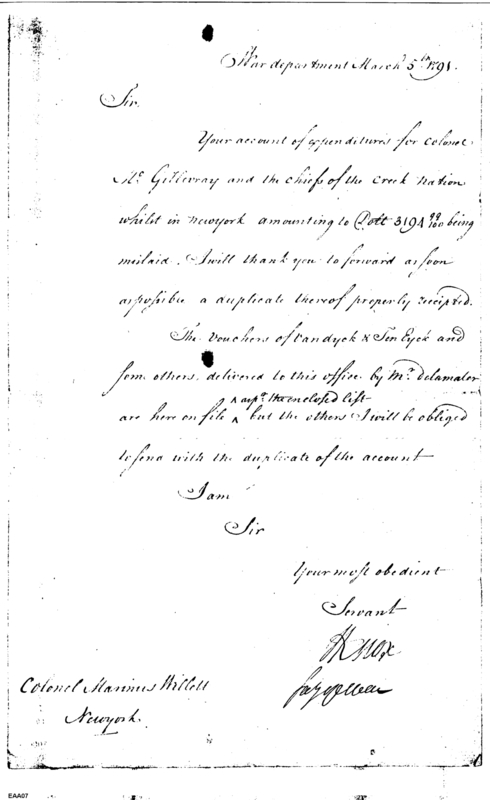 War department March 5th 1791.
Sir.
Your account of expenditures for colonel
Mc Gillivray and the chiefs of the Creek nation
whilst in Newyork amounting to Doll 3194 99/100 being
mislaid. I will thank you to forward as soon
as possible a duplicate thereof properly receipted.
The Vouchers of Vandyck & Ten Eyck and
some others, delivered to this office by Mr. Delamater
as pr. the enclosed list
are here on file ^ but the others I will be obliged
to send with the duplicate of the account
I am
Sir
Your most obedient
Servant
HKnox
Colonel Marinus Willett
Newyork.
EAA07